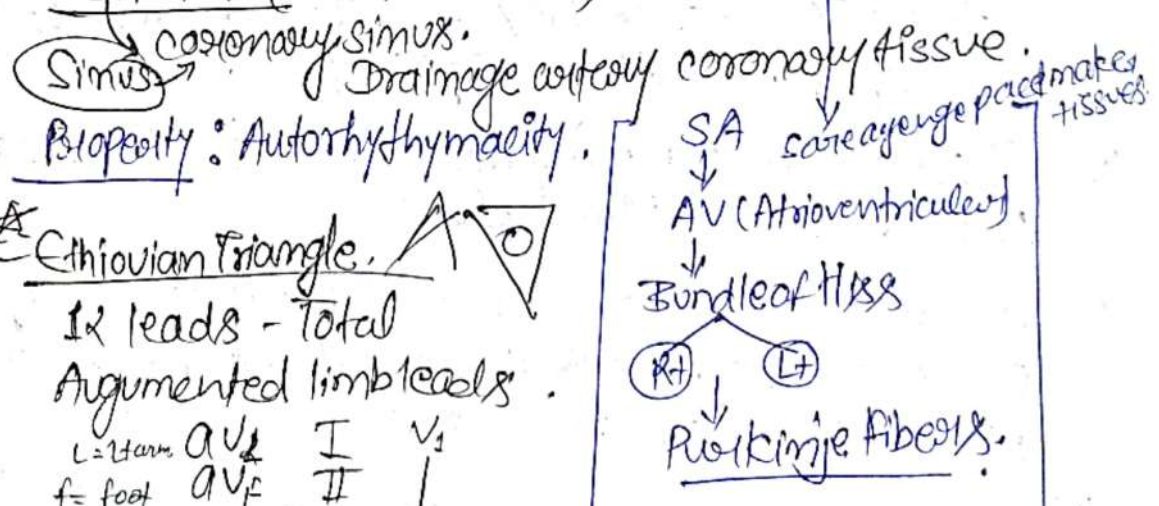 coronary sinus.
Sinus
Drainage artery coronary tissue.
Property : Autorhythymacity.
Ethiovian Triangle.
12 leads - Total
Augumented limb leads.
L = Lt arm aVL I V1
f = foot aVF II
SA
pacemaker
tissues
↓
AV (Atrioventricular)
↓
Bundle of Hiss
Rt Lt
↓
Purkinje fibers.